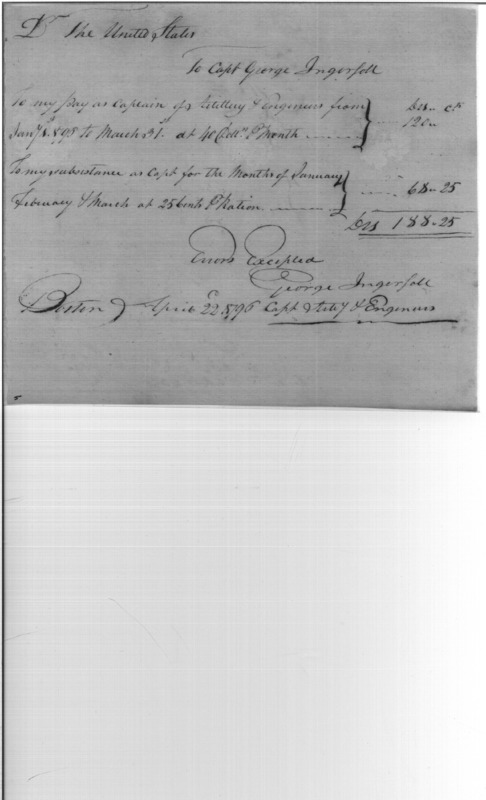 Dr The United States
To Capt George Ingersoll
To my pay as Captain of Artillery & Engineers from Dls Cts
Jany 1. 1795 to March 31st at 40 Dolls pr Month 120
To my subsistance as Capt for the Months of January
February & March at 25 Cents pr Ration 68-25
Dls 188-25
Errors Excepted
George Ingersoll
Boston April 22d 1796 Capt Artily & Engineers